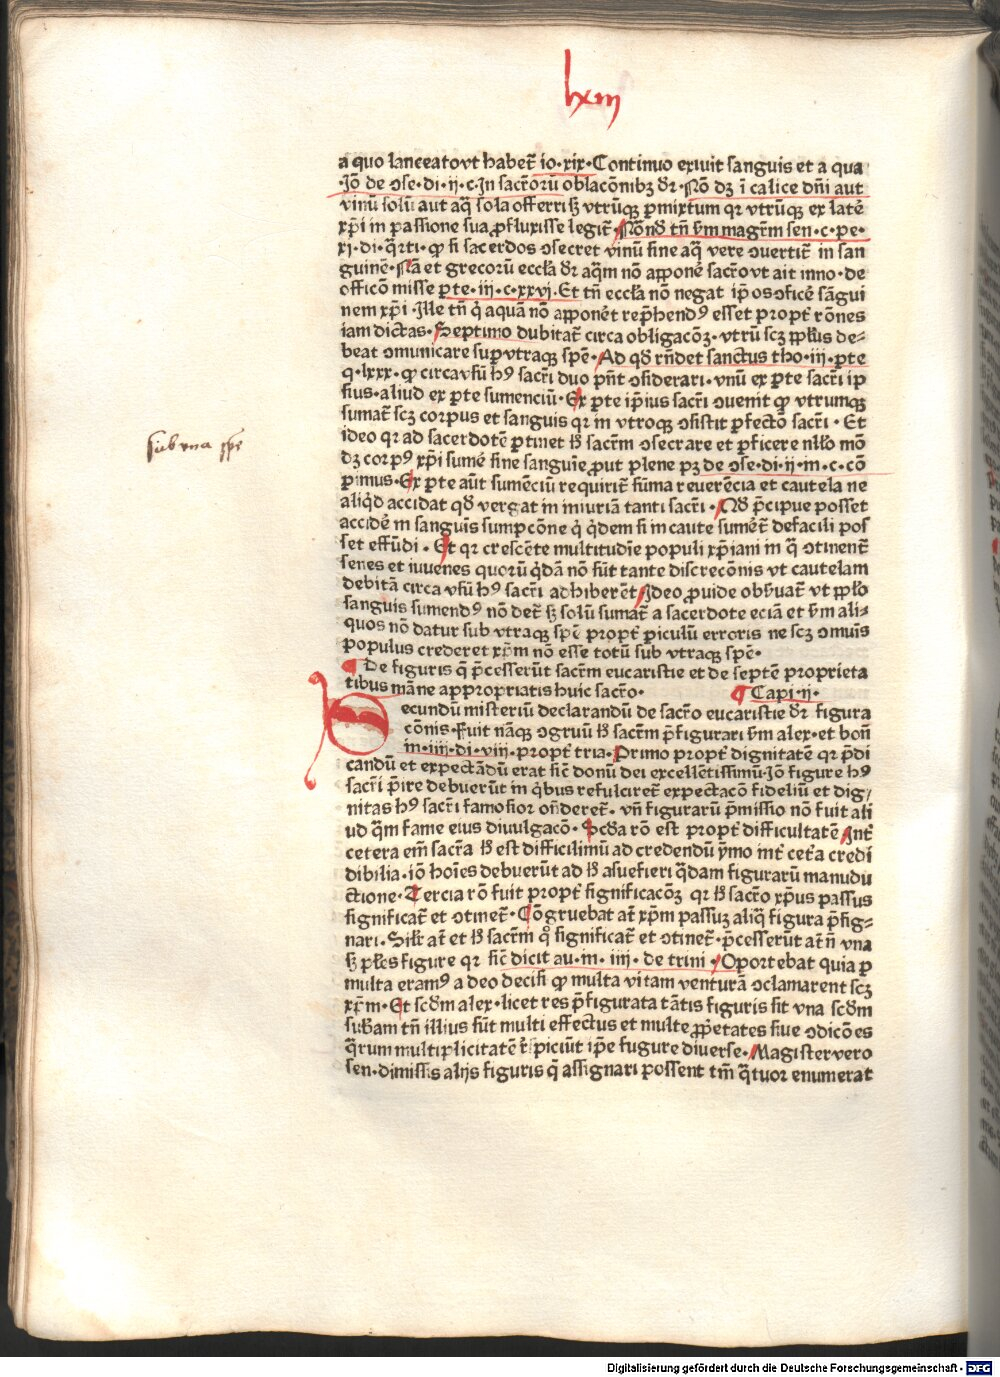 lxiij
a quo lanceatovt habet̄ io·xix·Continuo exiuit sanguis et a qua
·Jō de ↄse·di·ij·c·In sacr̄orū oblacōnibꝫ d̄r·Nō dꝫ ī calice dn̄i aut
vinū solū aut aq̄ sola offerri sꝫ vtrūqꝫ ꝑmixtum qr vtrūqꝫ ex late̅
xp̄i in passione sua ꝓfluxisse legit̄·Nōnd̄ tn̄ s̄m magr̄m sen·c·pe·
xj·di·q̄rti·ꝙ si sacerdos ↄsecret vinū sine aq̄ vere ↄuertit̄ in san
guinē·Nā et grecorū eccl̄a d̄r aq̄m nō apponē sacr̄ovt ait inno·de
officō misse ꝑte·iij·c·xxvj·Et tn̄ eccl̄a nō negat ip̄os ↄficē sāgui
nem xp̄i·Ille tn̄ q̇ aquā nō apponēt rep̄hendꝰ esset propt̄ rōnes
iam dictas·Septimo dubitat̄ circa obligacōꝫ·vtrū scꝫ pp̄lus de⸗
beat ↄmunicare sup vtraqꝫ spē·Ad qd̄ rn̄det sanctus tho·iij·ꝑte
q·lxxx·ꝙ circavsū hꝰ sacr̄i duo pn̄t ↄsiderari·vnū ex ꝑte sacr̄i ip
sius·aliud ex ꝑte sumenciū·Ex ꝑte ip̄ius sacr̄i ↄuenit ꝙ vtrumqꝫ
sumat̄ scꝫ corpus et sanguis qr in vtroqꝫ ↄsistit ꝑfectō sacr̄i·Et
ideo qr ad sacerdotē ꝑtinet h̄ sacr̄m ↄsecrare et ꝑficere nll̄o mō
dꝫ corpꝰ xp̄i sumē sine sanguīe ꝓut plene pꝫ de ↄse·di·ij·m·c·cō
sub vna spē
ꝑimus·Ex ꝑte aūt sumēciū requirit̄ sūma reuerēcia et cautela ne
aliq̇d accidat qd̄ vergat in iniuriā tanti sacr̄i·Qd̄ p̄cipue posset
accidē in sanguīs sumpcōne q̇ q̇dem si in caute sumēt̄ defacili pos
set effūdi·Et qr crescēte multitudīe populi xp̄iani in q̄ ↄtinent̄
senes et iuuenes quorū q̇dā nō sūt tante discrecōnis vt cautelam
debitā circa vsū hꝰ sacr̄i adhiberēt Ideo ꝓuide obs̄uat̄ vt ppl̄o
sanguis sumendꝰ nō det̄ sꝫ solū sumat̄ a sacerdote eciā et s̄m ali⸗
quos nō datur sub vtraqꝫ spē propt̄ ꝑiculū erroris ne scꝫ ↄmuīs
populus crederet xp̄m nō esse totū sub vtraqꝫ spē·
De figuris q̄ p̄cesserūt sacr̄m eucaristie et de septē proprieta
tibus māne appropriatis huic sacr̄o· Capi·ij·
Secundū misteriū declarandū de sacr̄o eucaristie d̄r figura
cōnis·Fuit nāqꝫ ↄgruū h̄ sacr̄m p̄figurari s̄m alex·et bon̄
in·iiij·di·viij·propt̄ tria·Primo propt̄ dignitatē qr p̄di
candū et expectādū erat sic̄ donū dei excellētissimū·Jō figure hꝰ
sacr̄i p̄ire debuerūt in q̇bus refulciret̄ expectacō fideliū et dig⸗
nitas hꝰ sacr̄i famosior on̄deret̄·vn̄ figurarū p̄missio nō fuit ali
ud q̄m fame eius diuulgacō·Scd̄a rō est propt̄ difficultatē Int̄
cetera em̄ sacr̄a h̄ est difficilimū ad credendū ymo int̄ cet̄a credi
dibilia·iō hoīes debuerūt ad h̄ asuefieri q̄dam figurarū manudu
ctione·Tercia rō fuit propt̄ significacōꝫ qr h̄ sacr̄o xp̄us passus
significat̄ et ↄtinet̄·Cōgruebat at̄ xp̄m passuꝫ aliq̄ figura p̄fig⸗
nari·Silr̄ at̄ et h̄ sacr̄m q̊ significat̄ et ↄtinet̄·p̄cesserūt at̄n̄ vna
sꝫ pl̄es figure qr sic̄ dicit au·m·iiij·de trini·Oportebat quia ꝑ
multa eramꝰ a deo decisi ꝙ multa vitam venturā ↄclamarent scꝫ
xp̄m·Et scd̄m alex·licet res p̄figurata tātis figuris sit vna scd̄m
sub̄am tn̄ illius sūt multi effectus et multe ꝓp̄etates siue ↄdicōes
q̄rum multiplicitatē r̄spiciūt ip̄e fugure diuerse·Magister vero
sen·dimissis alijs figuris q̄ assignari possent tm̄ q̄tuor enumerat
Digitalisierung gefördert durch die Deutsche Forschungsgemeinschaft - DFG